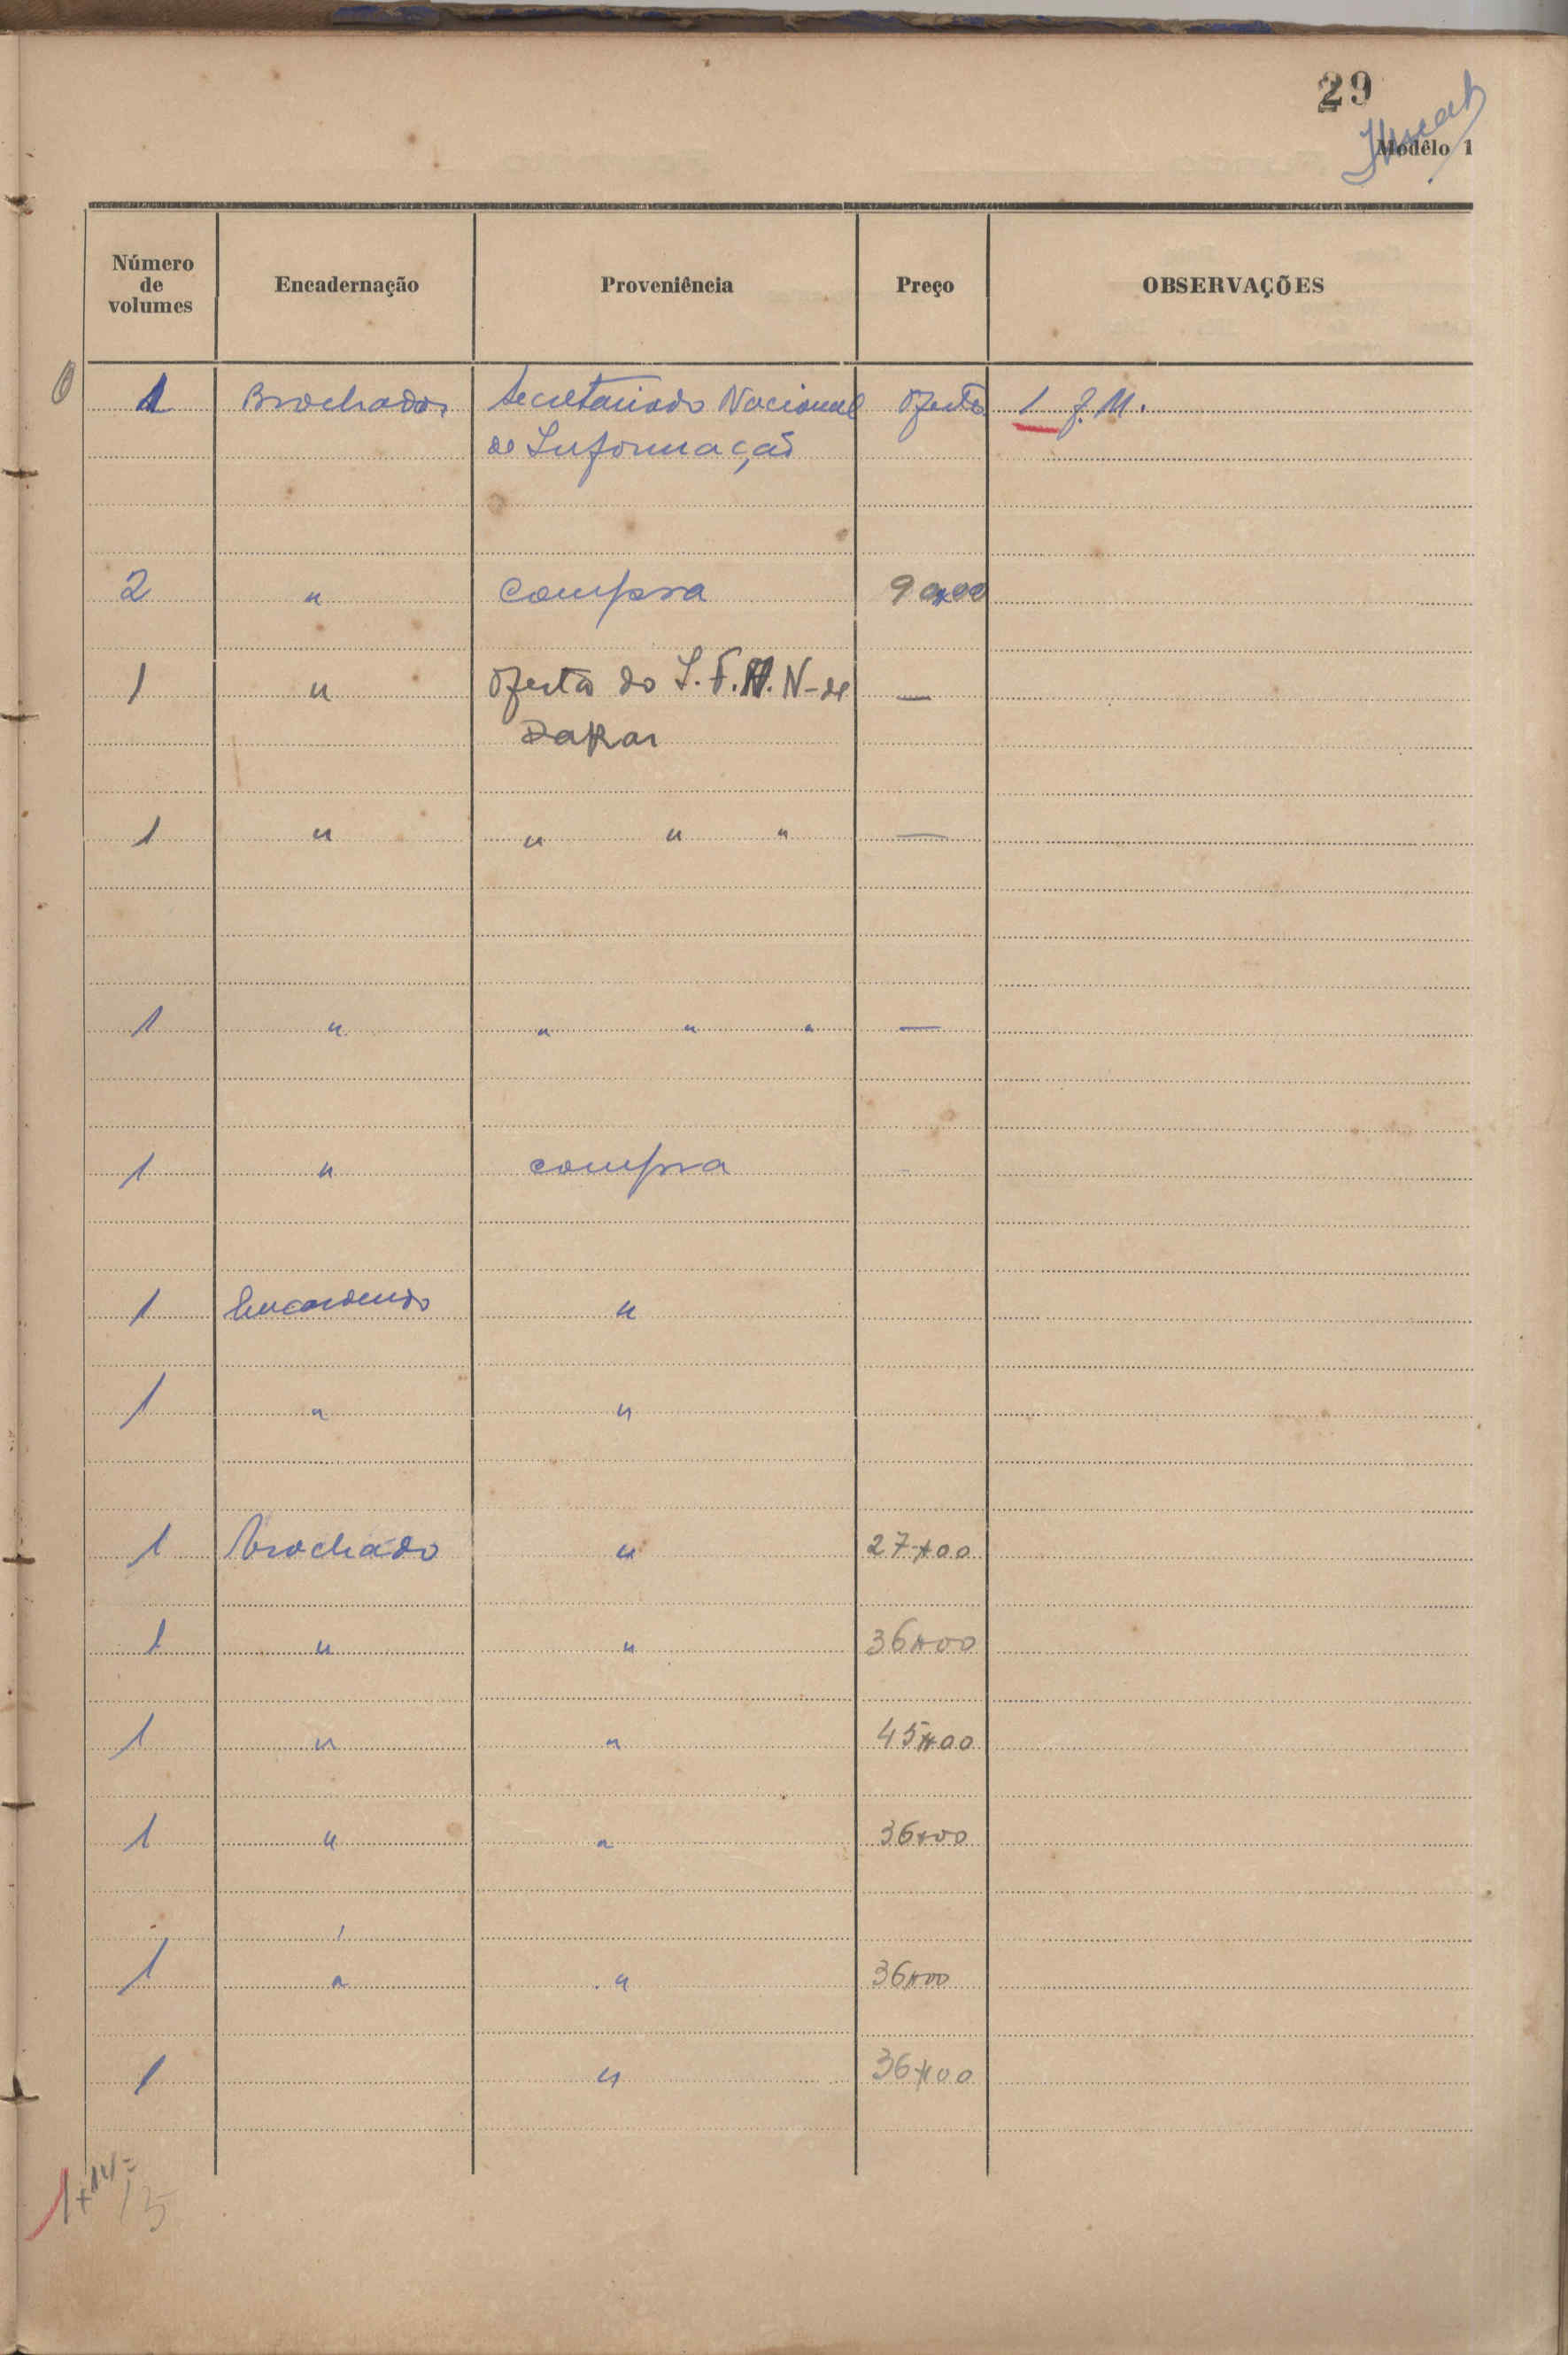 29
Modêlo 1
Número de volumes Encadernação Proveniência Preço OBSERVAÇÕES
0 1 Brochados Secretariado Nacional Oferta 1 J. M.
de Informação
2 " compra 90$00
1 " Oferta do I.F.A.N-de —
Dakar
1 " " " " —
1 " " " " —
1 " compra
1 Encardendo "
1 " "
1 brochado " 27$00
1 " " 36$00
1 " " 45$00
1 " " 36$00
1 " " 36$00
1 " 36$00
1+14=
15